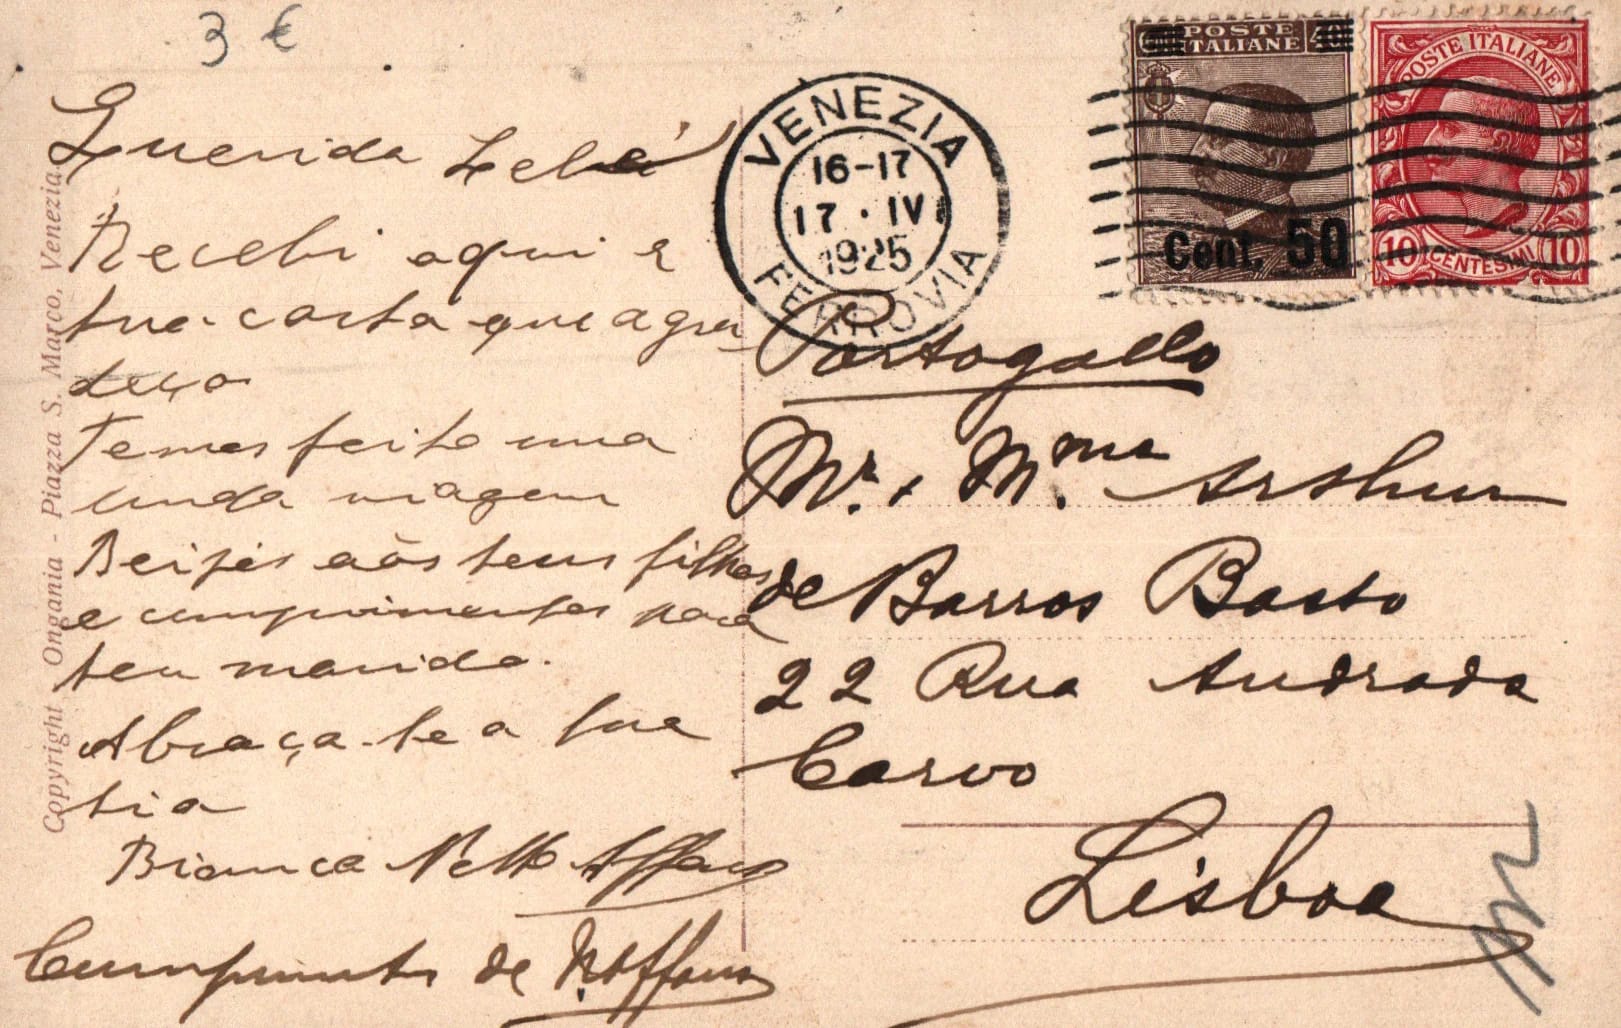 3 €
Querida Lelé
Recebi aqui a
tua carta que agra
deço
Temos feito uma
linda viagem
Beijos aos teus filhos
e cumprimentos para
teu marido.
Abraça-te a tua
tia
Bianca Netto
Cumprimentos de
Copyright Ongania - Piazza S. Marco, Venezia.
VENEZIA
16-17
17 · IV
1925
FERROVIA
POSTE
ITALIANE 40
Cent. 50
POSTE ITALIANE
10 CENTESIMI 10
Portogallo
Mr. + Mme. Arthur
de Barros Basto
22 Rua Andrada
Carvo
Lisboa